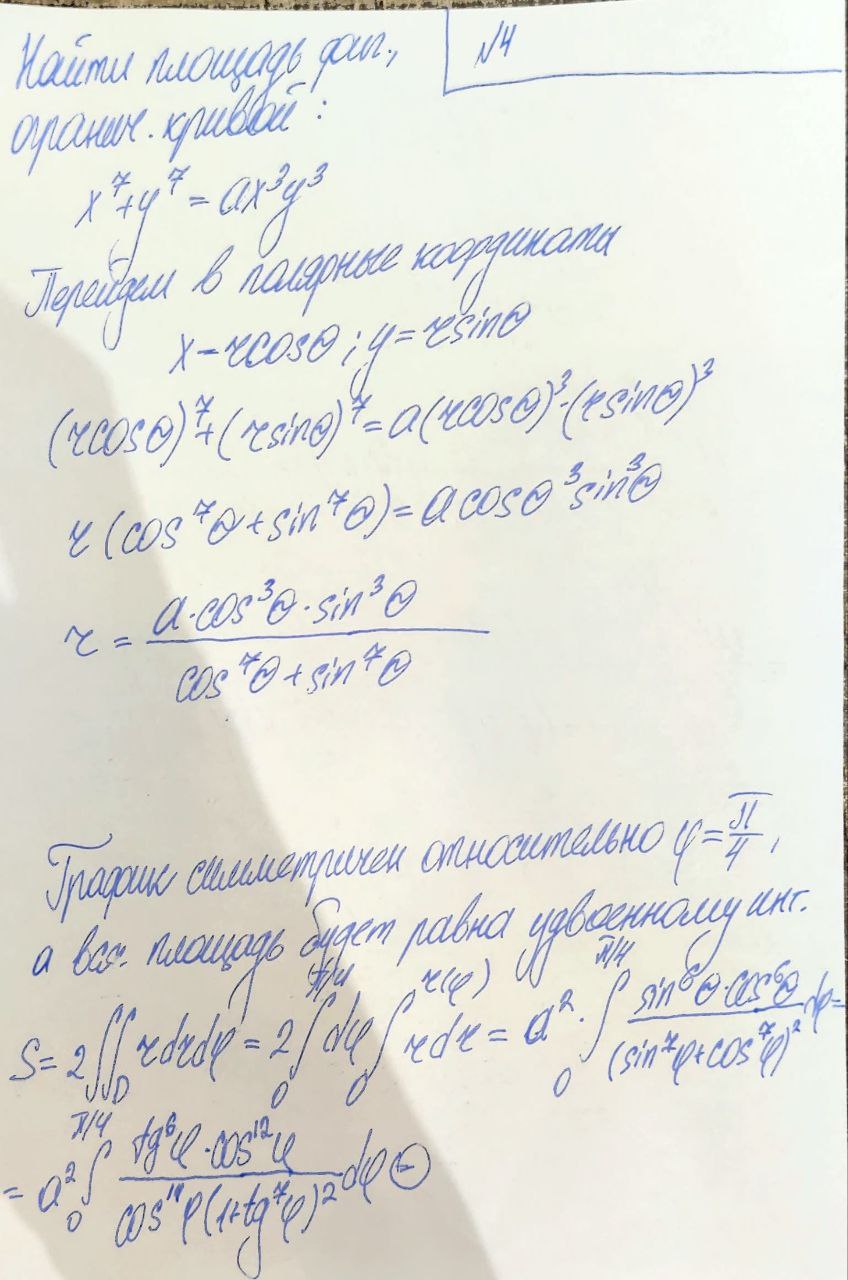 Найти площадь фиг.,
огранич. кривой:
№4
x⁷+y⁷ = ax³y³
Перейдем в полярные координаты
x = rcosθ; y = rsinθ
(rcosθ)⁷+(rsinθ)⁷ = a(rcosθ)³·(rsinθ)³
r(cos⁷θ+sin⁷θ) = a cosθ³sin³θ
r = a·cos³θ·sin³θ / cos⁷θ+sin⁷θ
График симметричен относительно φ=π/4,
а вся площадь будет равна удвоенному инт.
S= 2∬_D rdrdφ = 2∫_0^{π/4} dφ ∫_0^{r(φ)} rdr = a²·∫_0^{π/4} sin⁶θ·cos⁶θ / (sin⁷φ+cos⁷φ)² dφ=
= a² ∫_0^{π/4} tg⁶φ·cos¹²φ / cos¹⁴φ(1+tg⁷φ)² dφ ⊜